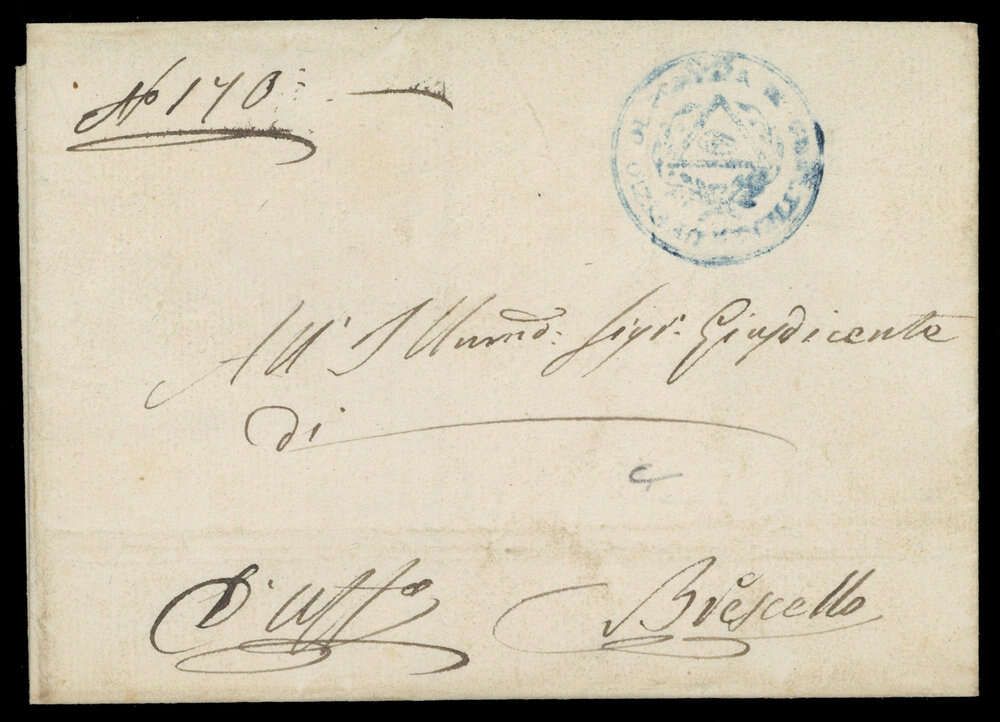 No 170
All' Illumo: Sigr. Giusdicente
di
D'Uffo
Brescello